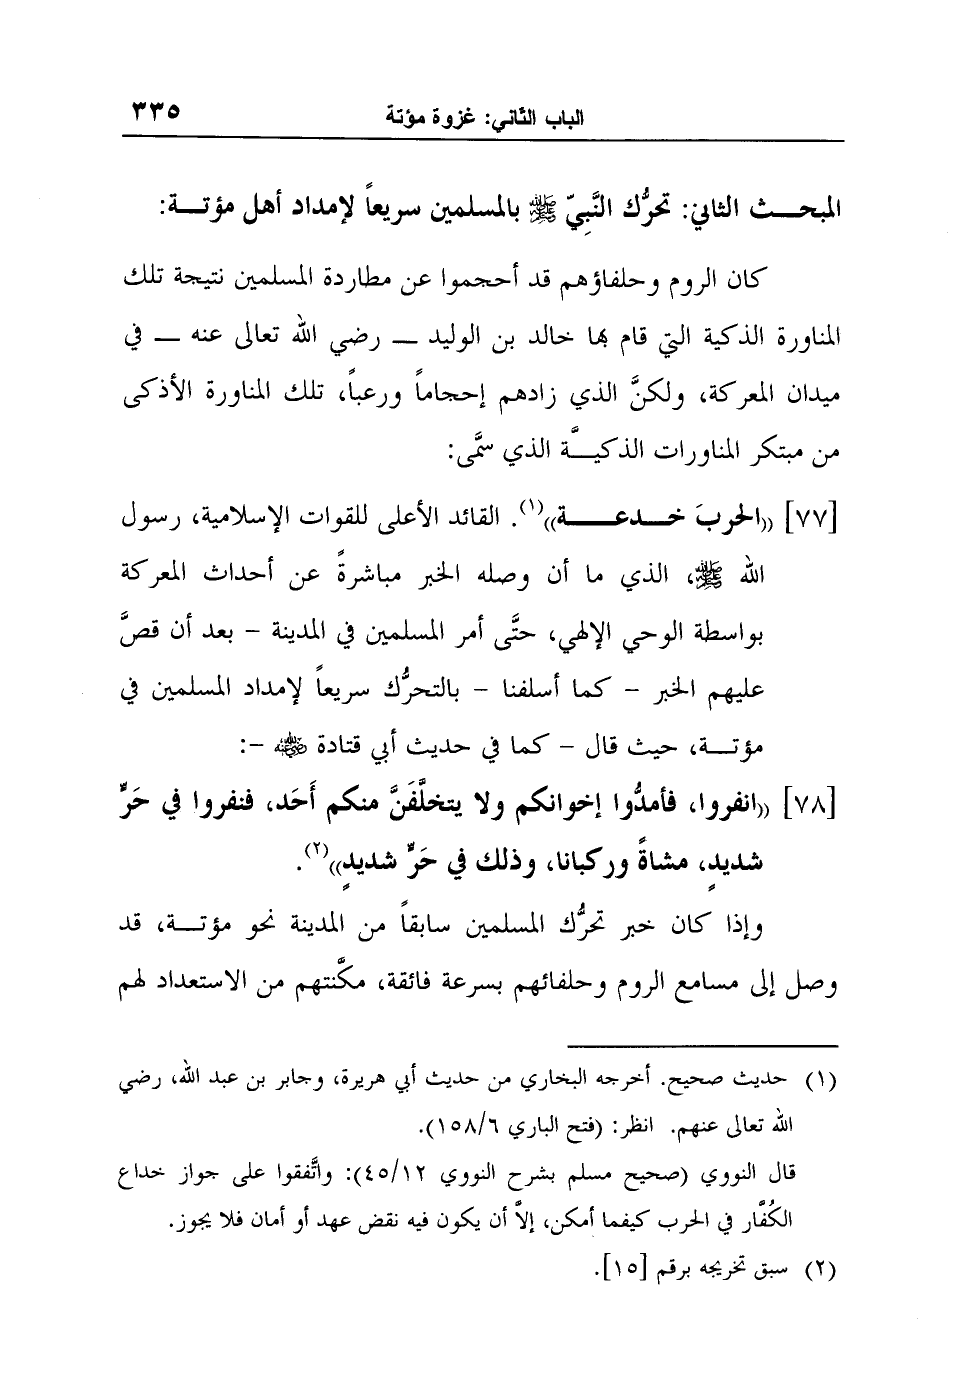 الباب الثاني: غزوة مؤتة ٣٣٥
المبحـــث الثاني: تحرُّك النَّبِيّ ﷺ بالمسلمين سريعاً لإمداد أهل مؤتـــة:
كان الروم وحلفاؤهم قد أحجموا عن مطاردة المسلمين نتيجة تلك
المناورة الذكية التي قام بها خالد بن الوليد ــ رضي الله تعالى عنه ــ في
ميدان المعركة، ولكنَّ الذي زادهم إحجاماً ورعباً، تلك المناورة الأذكى
من مبتكر المناورات الذكيـــَّة الذي سمَّى:
[٧٧] ((الحربَ خـــدعـــــة))(١). القائد الأعلى للقوات الإسلامية، رسول
الله ﷺ، الذي ما أن وصله الخبر مباشرةً عن أحداث المعركة
بواسطة الوحي الإلهي، حتَّى أمر المسلمين في المدينة - بعد أن قصَّ
عليهم الخبر - كما أسلفنا - بالتحرُّك سريعاً لإمداد المسلمين في
مؤتـــة، حيث قال - كما في حديث أبي قتادة ﵁ -:
[٧٨] ((انفروا، فأمدُّوا إخوانكم ولا يتخلَّفَنَّ منكم أَحَد، فنفروا في حَرٍّ
شديدٍ، مشاةً وركبانا، وذلك في حَرٍّ شديدٍ))(٢).
وإذا كان خبر تحرُّك المسلمين سابقاً من المدينة نحو مؤتـــة، قد
وصل إلى مسامع الروم وحلفائهم بسرعة فائقة، مكَّنتهم من الاستعداد لهم
(١) حديث صحيح. أخرجه البخاري من حديث أبي هريرة، وجابر بن عبد الله، رضي
الله تعالى عنهم. انظر: (فتح الباري ١٥٨/٦).
قال النووي (صحيح مسلم بشرح النووي ٤٥/١٢): واتَّفقوا على جواز خداع
الكُفَّار في الحرب كيفما أمكن، إلاَّ أن يكون فيه نقض عهد أو أمان فلا يجوز.
(٢) سبق تخريجه برقم [١٥].